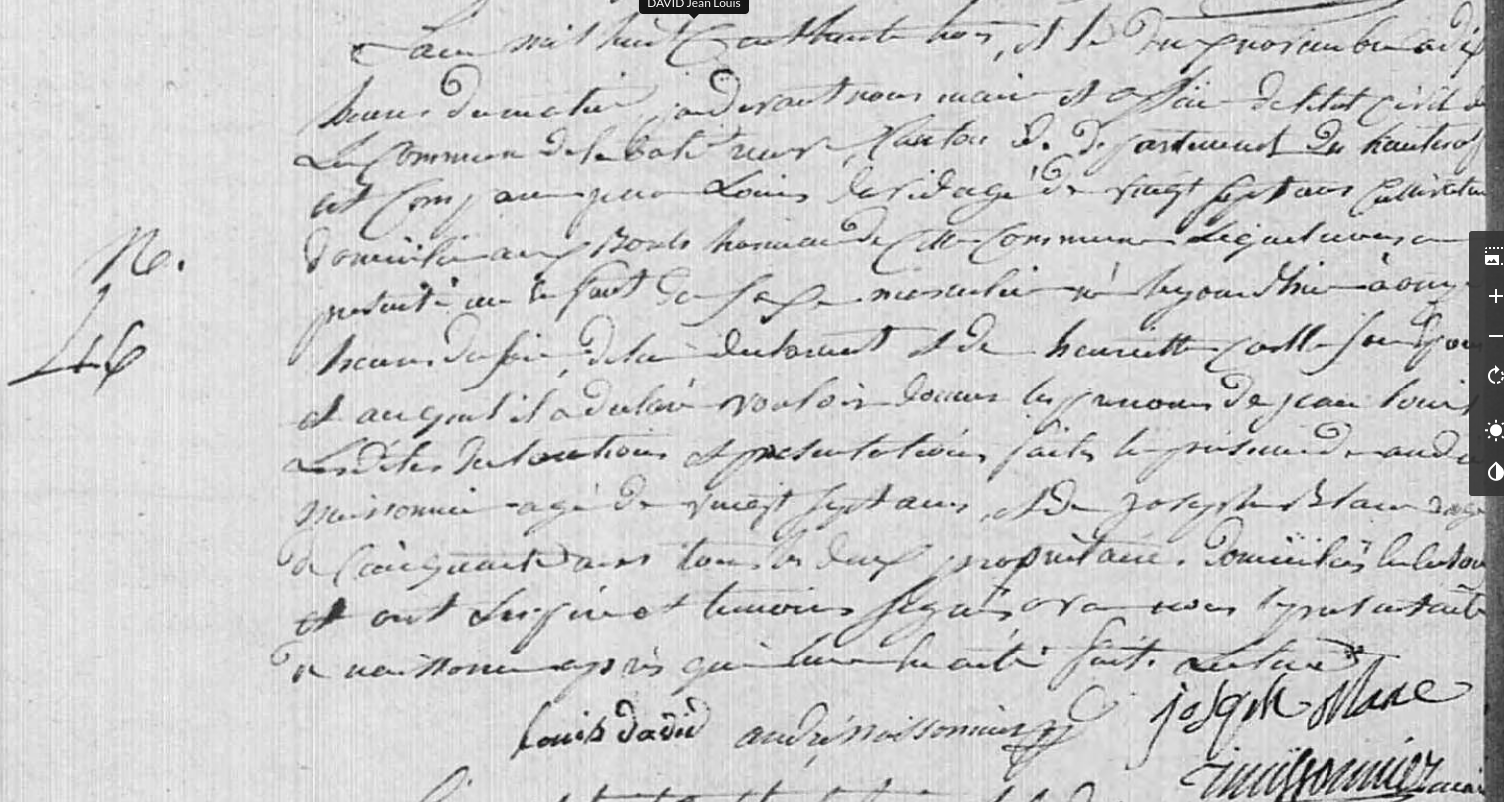 DAVID Jean Louis
L'an mil huit Cent trente trois, et le du mois de novembre a dix
heures du matin, pardevant nous maire et officier de l'état civil de
La Commune de la batie neuve, Canton de Departement Des hautes alp
est Comparu Louis david agé de vingt sept ans Cultivateur
domicilié aux cette Commune Lequel nous a
presenté un Enfant du sexe masculin né à onze
heures du soir, de lui declarant et de henriette son Epouse
et auquel il a declaré vouloir donner les prenoms de jean louis
Lesdites declarations et presentations faites En presence de andré
meissonnier agé de vingt sept ans, et de Joseph Blanc agé
de Cinquante ans tous les deux propriétaires. Domiciliés
et ont Les pere et temoins signé avec nous le present acte
de naissance après qu'il leur en a été fait Lecture
N.
46
Louis david andré Meissonnier joseph Blanc